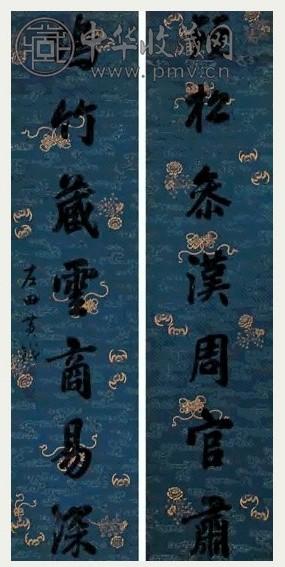 中华收藏网
www.pmv.cn
松參漢周官肅
竹藏雲商易深
左田黃鉞